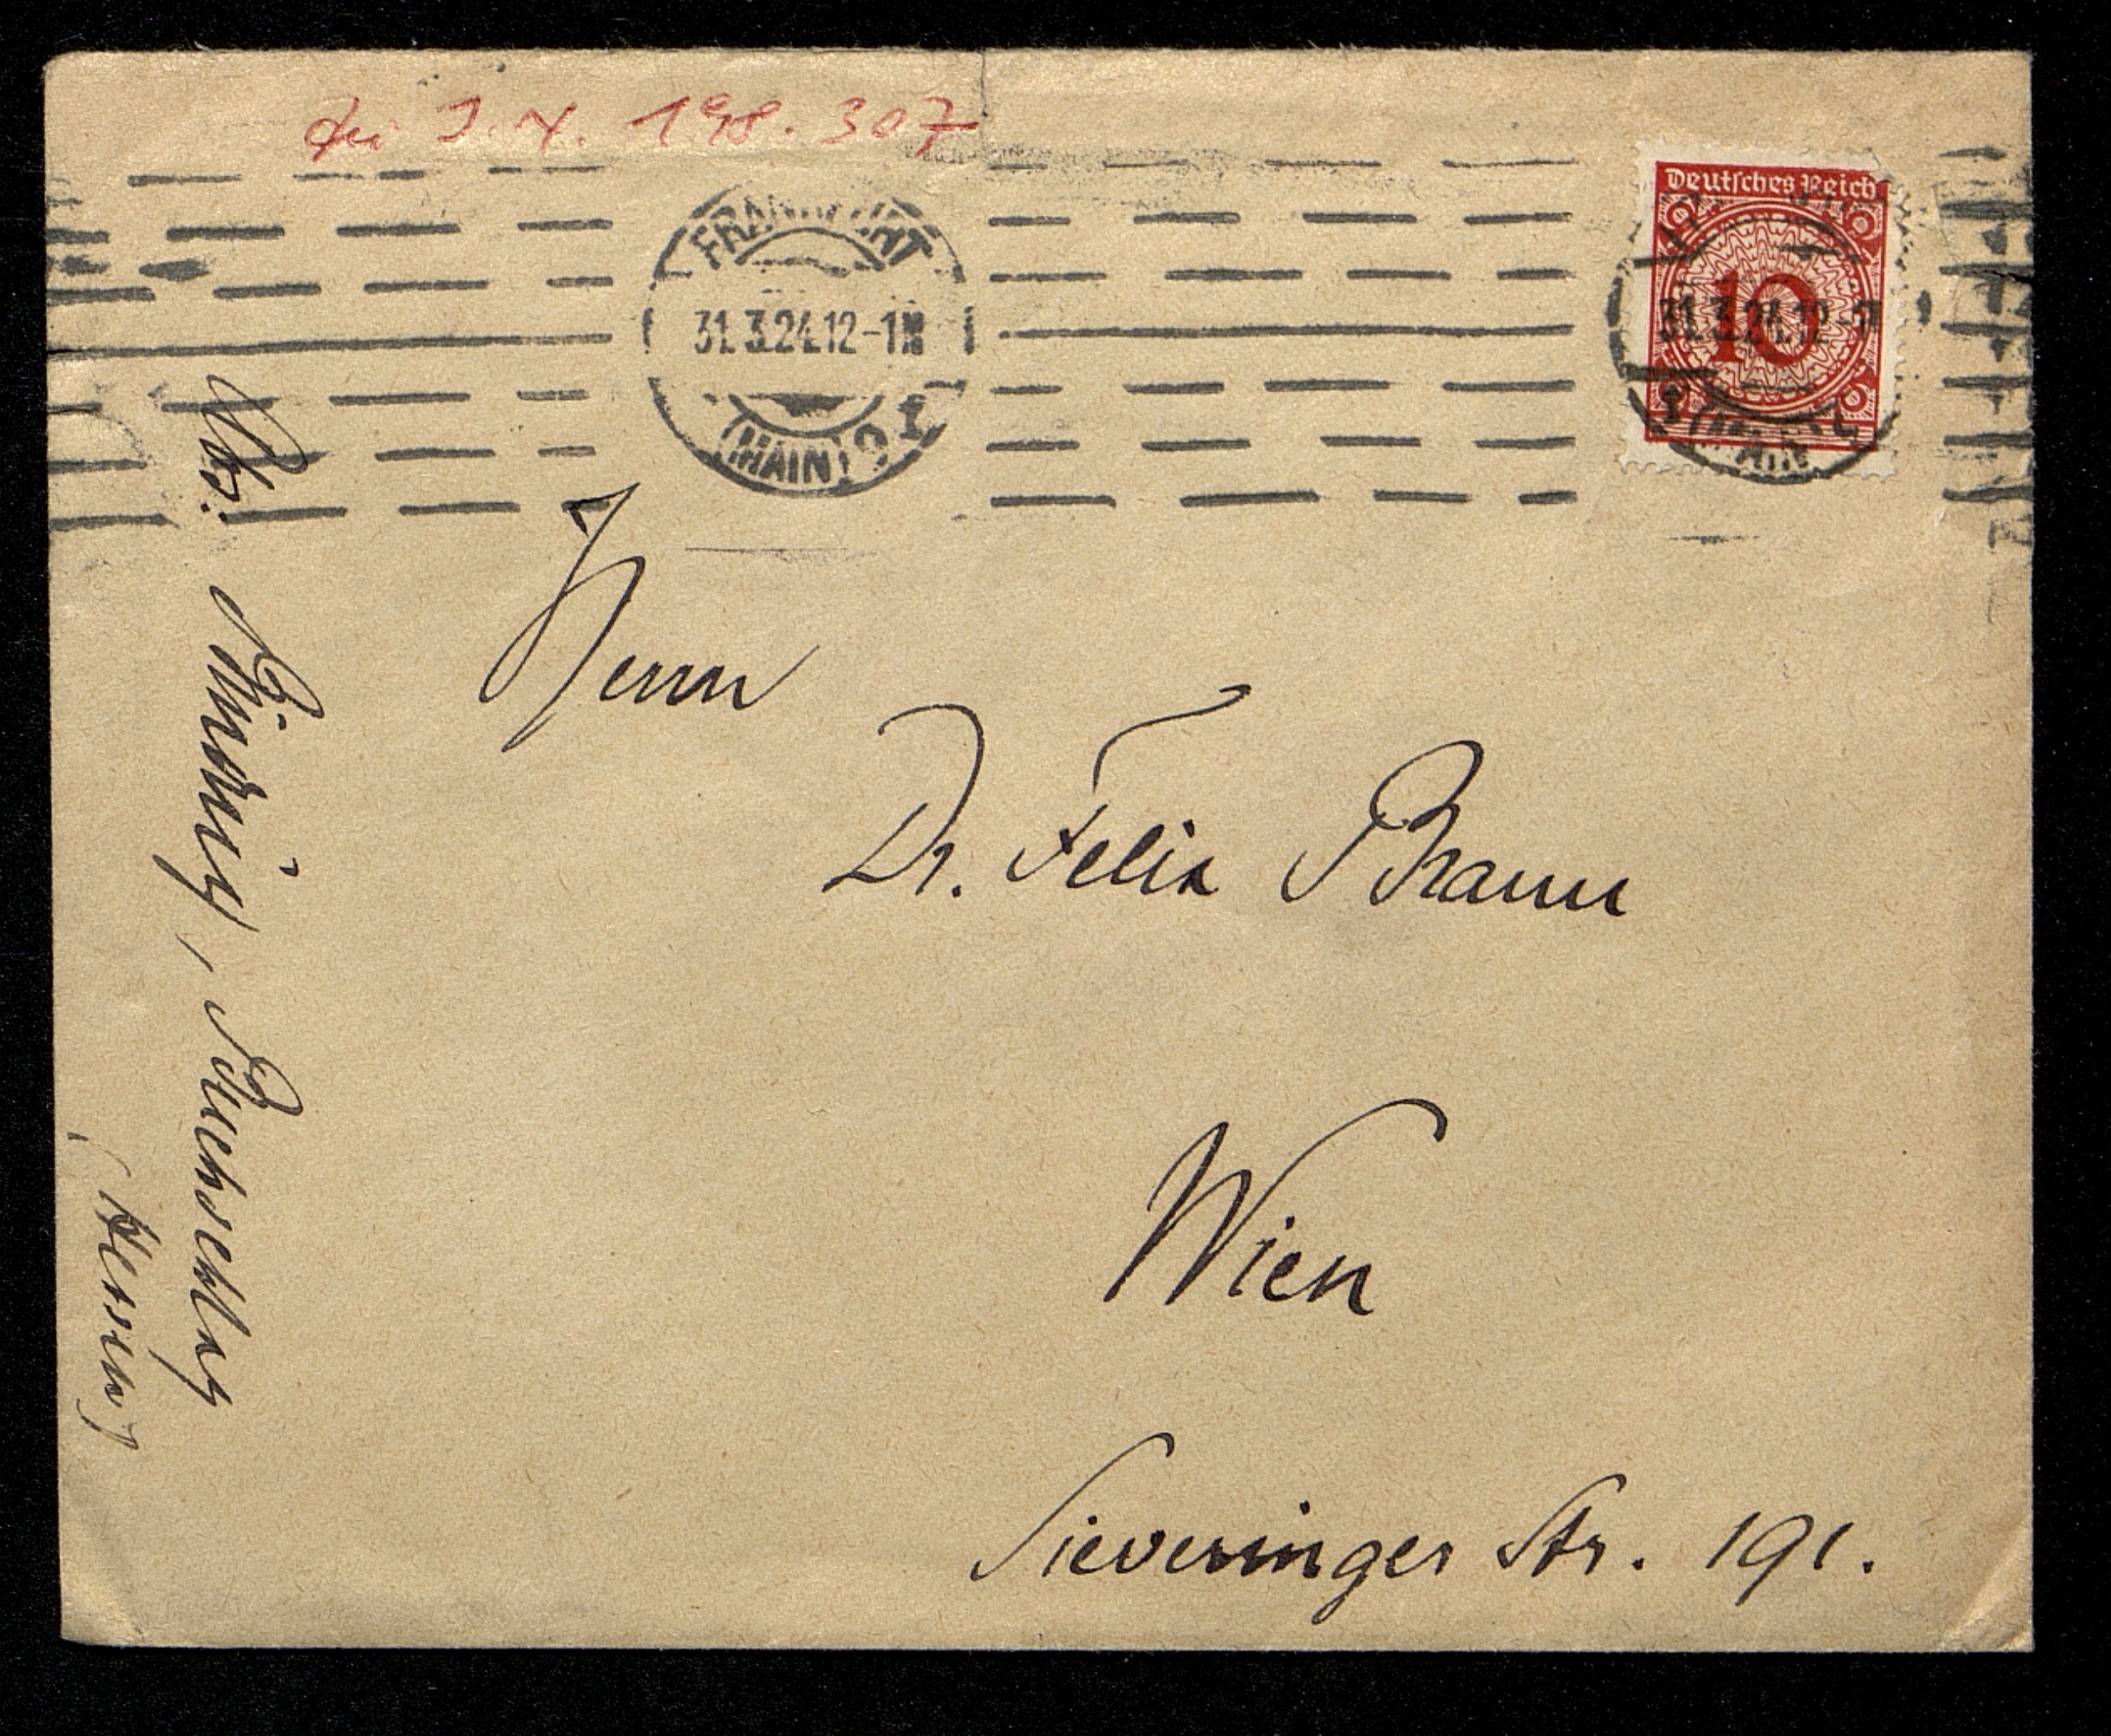 zu I. N. 198.307
Deutsches Reich
10
FRANKFURT
31.3.24.12-1N
(MAIN) 9
31.3.24.12-1
Herrn
Dr. Felix Braun
Wien
Sieveringer Str. 191.
Abs: Binding, Buchschlag
(Hessen)